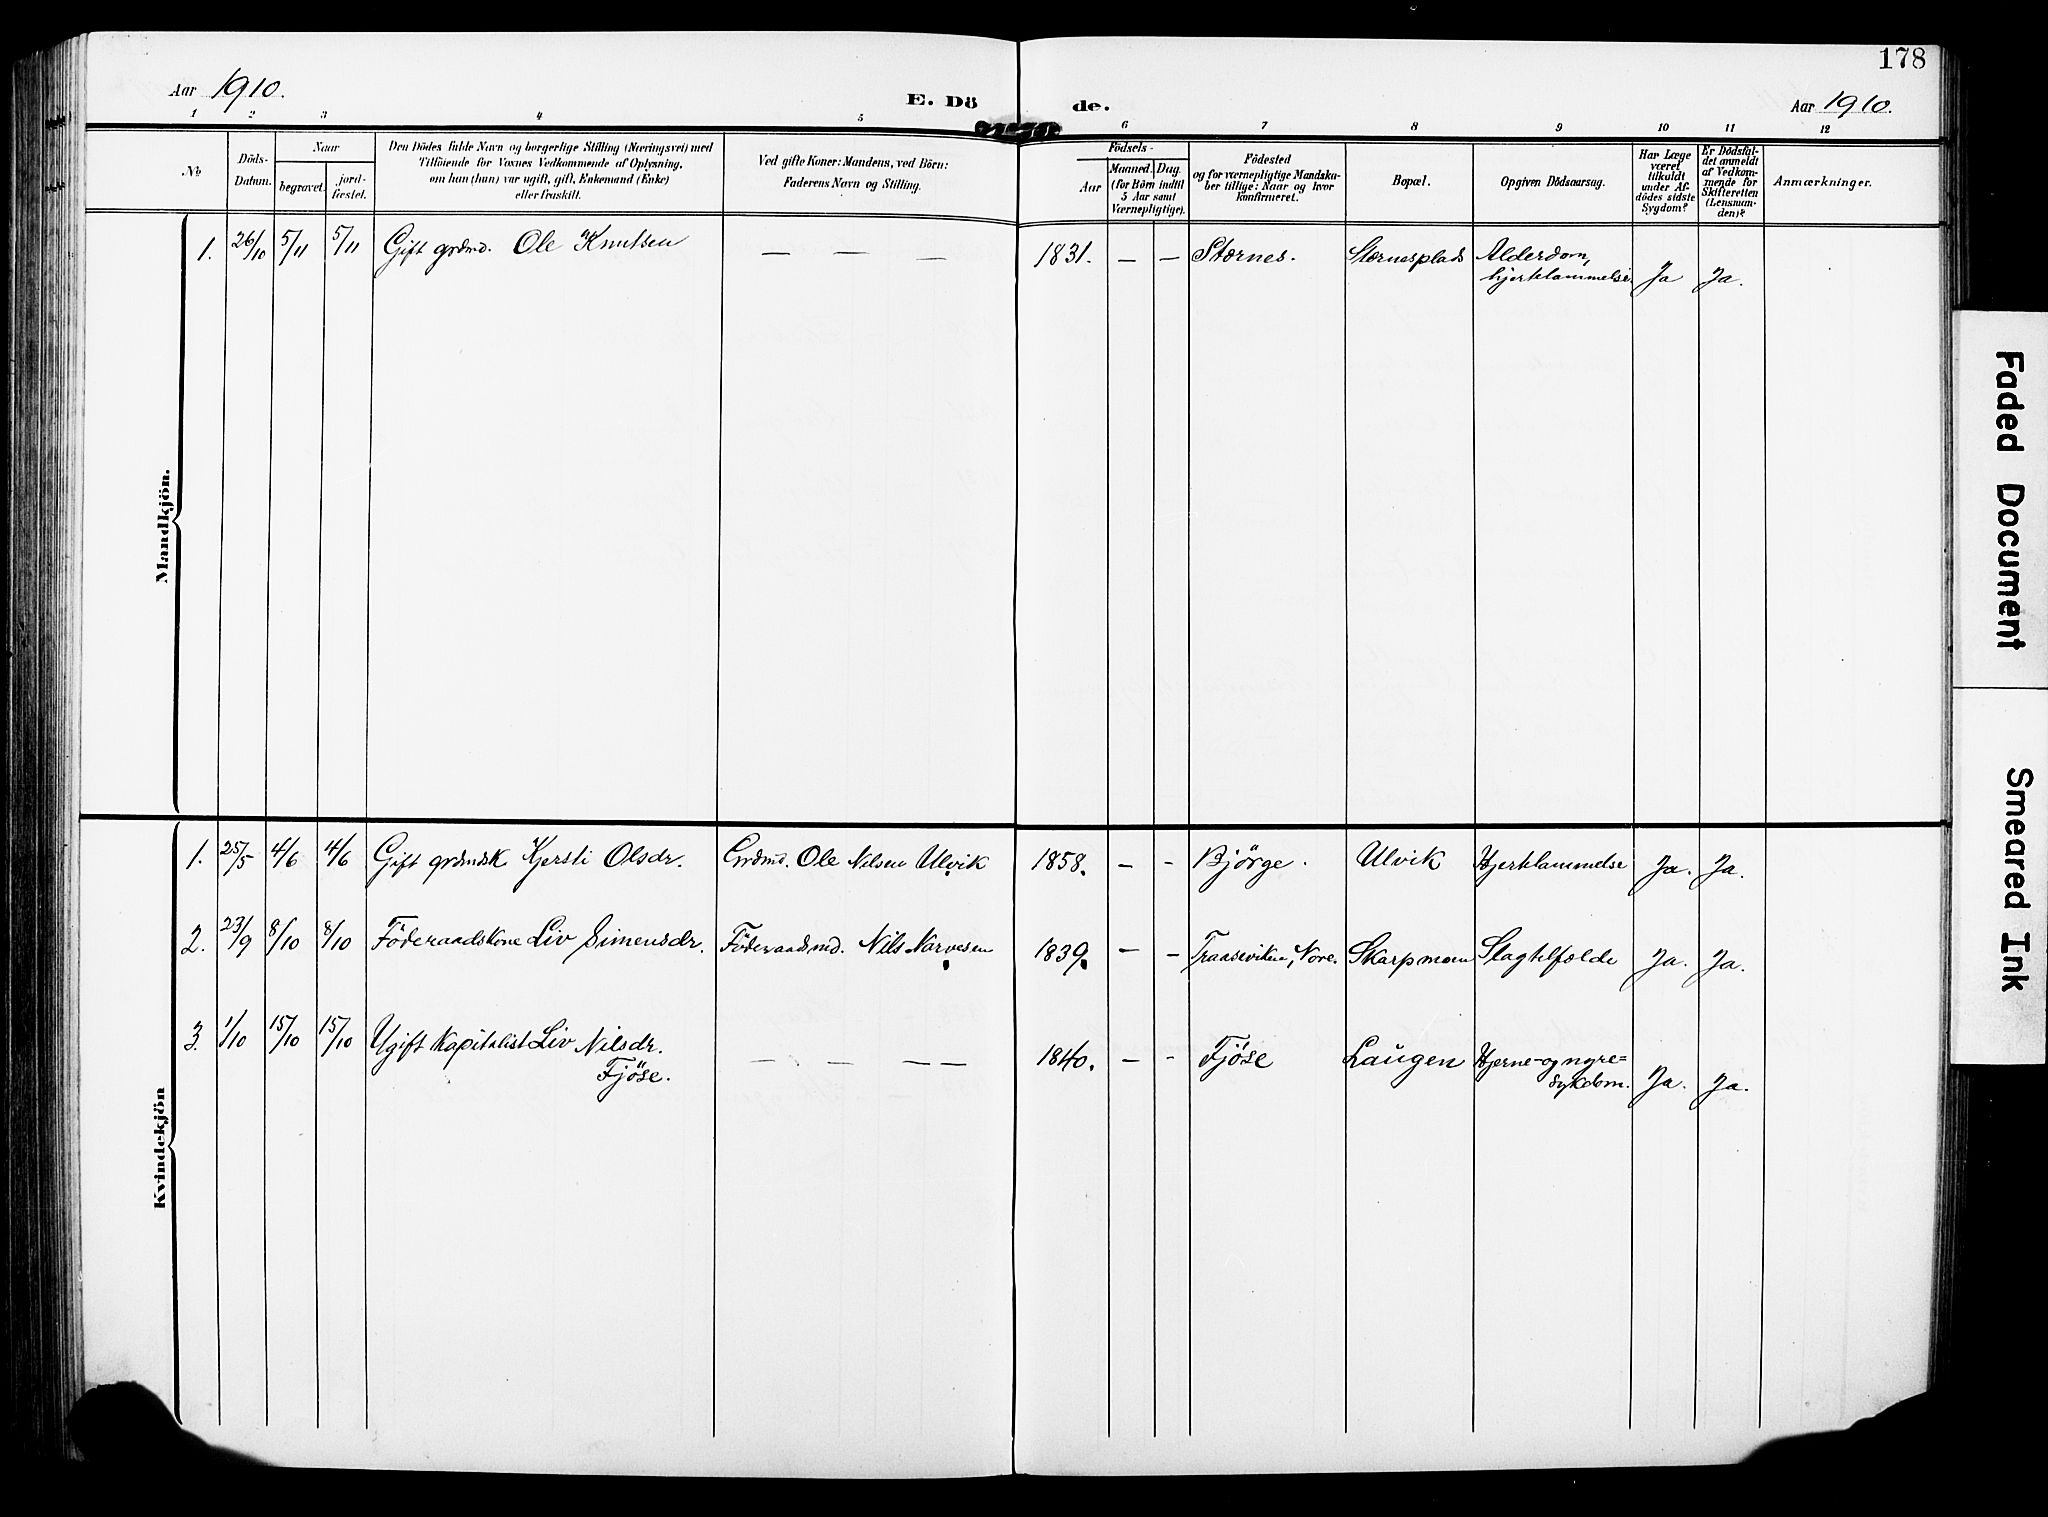 178
Aar 1910.
E. Dö de.
Aar 1910.
1 2 3 4 5 6 7 8 9 10 11 12
No
Döds-
Datum.
Naar
begravet.
jord-
fæstet.
Den Dödes fulde Navn og borgerlige Stilling (Næringsvei) med
Tilföiende for Voxnes Vedkommende af Oplysning,
om han (hun) var ugift, gift, Enkemand (Enke)
eller fraskilt.
Ved gifte Koner: Mandens, ved Börn:
Faderens Navn og Stilling.
Födsels-
Aar
Maaned. Dag.
(for Börn indtil
5 Aar samt
Værnepligtige).
Födested
og for værnepligtige Mandska-
ber tillige: Naar og hvor
konfirmeret.
Bopæl.
Opgiven Dödsaarsag.
Har Læge
været
tilkaldt
under Af-
dödes sidste
Sygdom?
Er Dödsfal-
det anmeldt
af Vedkom-
mende for
Skifteretten
(Lensman-
den)?
Anmærkninger.
Mandkjön.
1. 26/10 5/11 5/11 Gift grdmd. Ole Knutsen — — — 1831. — — Stærnes. Stærnesplads Alderdom,
hjerteslammelse. Ja Ja.
Kvindekjön
1. 25/5 4/6 4/6 Gift grdmdsk Kjersti Olsdr. Grdmd. Ole Nilsen Ulvik 1858. — - Bjørge. Ulvik Hjerteslammelse Ja. Ja.
2. 23/9 8/10 8/10 Föderaadskone Liv Simensdr. Föderaadsmd. Nils Narvesen 1839. — - Traaseviken, Nore. Skarpmoen Slagtilfælde Ja. Ja.
3. 1/10 15/10 15/10 Ugift Kapitalist Liv Nilsdr.
Fjöse. — — — — 1840. — - Fjöse Laugen Hjerne- og nyre=
sykdom. Ja. Ja.
Faded Document
Smeared Ink